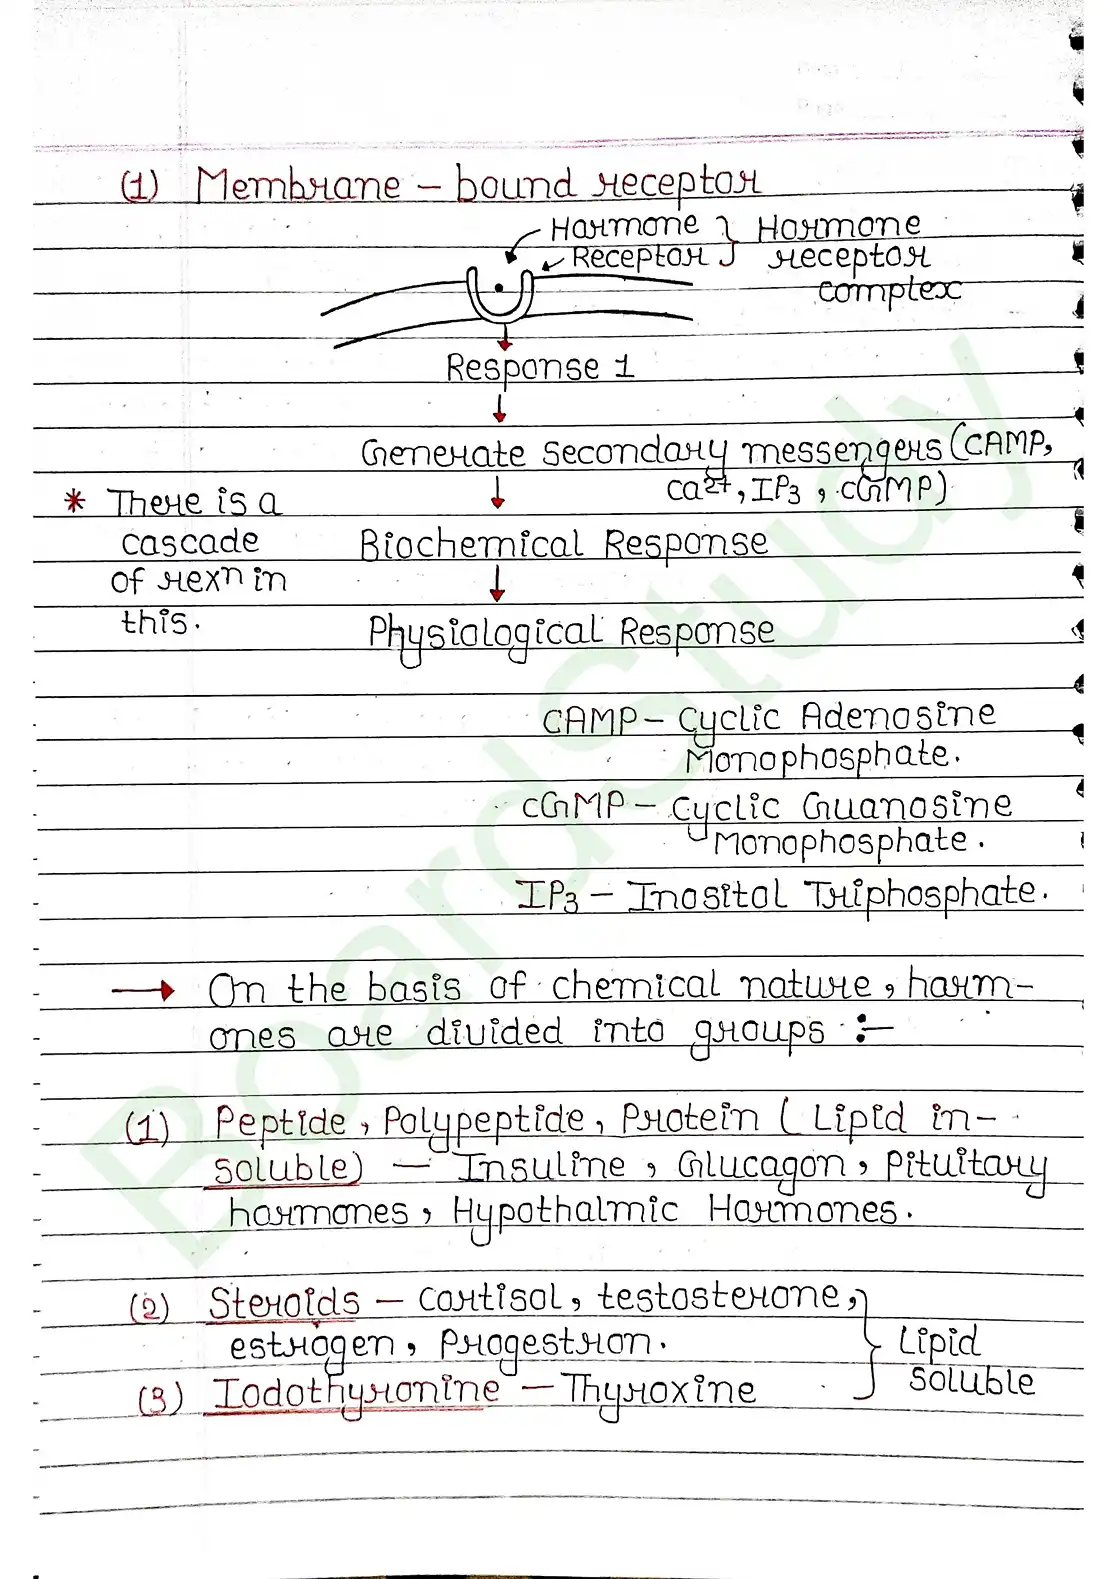 (1) Membrane - bound receptor
Hormone } Hormone
Receptor receptor
complex
Response 1
Generate secondary messengers (cAMP,
Ca2+, IP3, cGMP)
* There is a
cascade
of rexn in
this.
Biochemical Response
Physiological Response
cAMP - Cyclic Adenosine
Monophosphate.
cGMP - Cyclic Guanosine
Monophosphate.
IP3 - Inositol Triphosphate.
→ On the basis of chemical nature, horm-
ones are divided into groups :-
(1) Peptide, Polypeptide, Protein (Lipid in-
soluble) - Insuline, Glucagon, Pituitary
hormones, Hypothalmic Hormones.
(2) Steroids - Cortisol, testosterone,
estrogen, Progestron.
(3) Iodothyronine - Thyroxine
} Lipid
soluble
BoardStudy